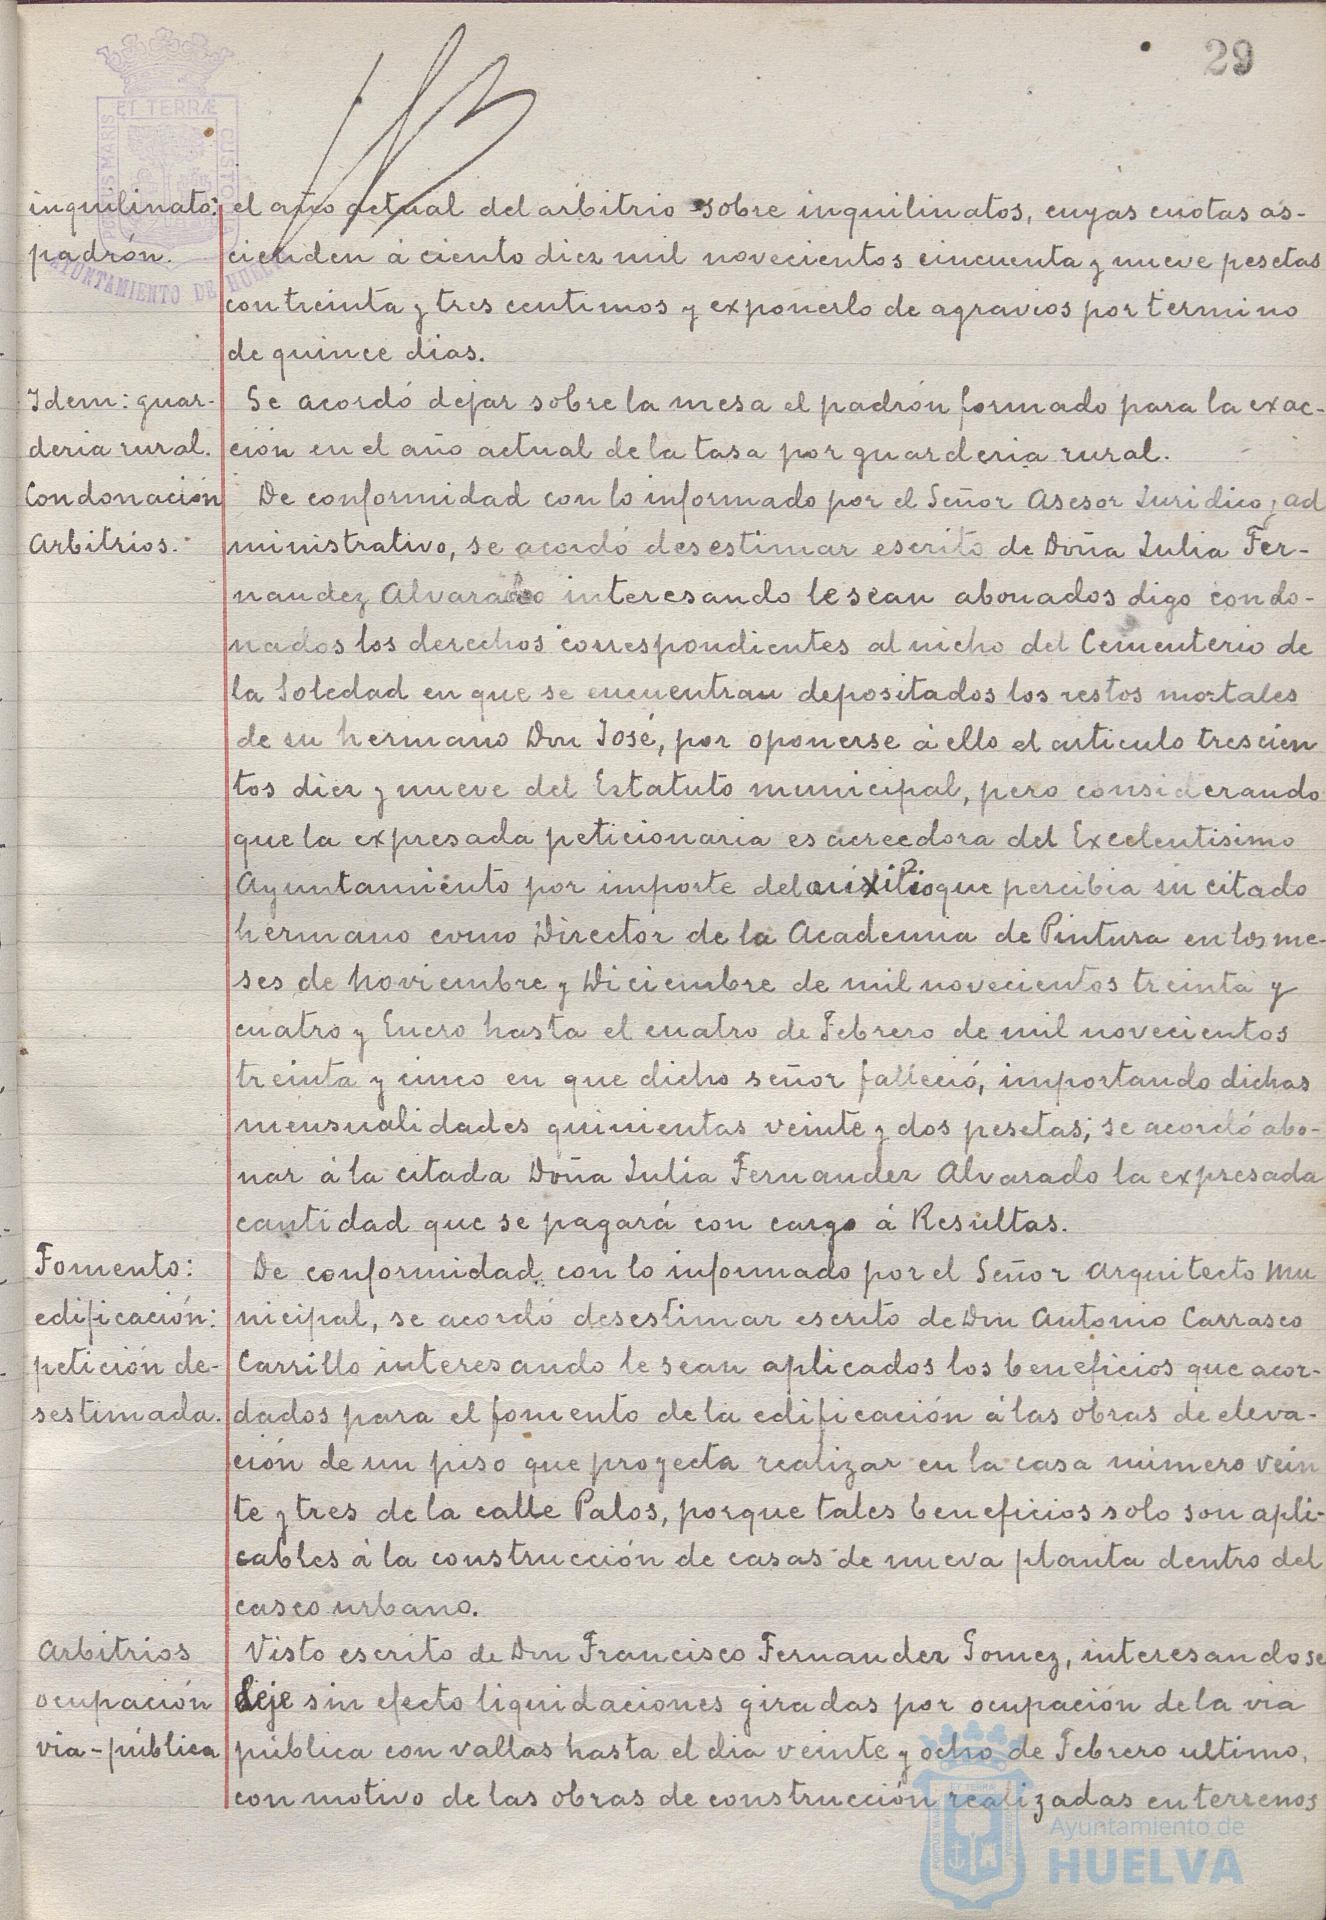 29
ET TERRÆ
PORTUS MARIS
CUSTODIA
AYUNTAMIENTO DE HUELVA
inquilinato: el año actual del arbitrio sobre inquilinatos, cuyas cuotas as-
padrón. cienden á ciento diez mil novecientos cincuenta y nueve pesetas
con treinta y tres centimos y exponerlo de agravios por termino
de quince dias.
Idem: guar- Se acordó dejar sobre la mesa el padrón formado para la exac-
deria rural. ción en el año actual de la tasa por guarderia rural.
Condonación De conformidad con lo informado por el Señor Asesor Juridico, ad
Arbitrios. ministrativo, se acordó desestimar escrito de Doña Julia Fer-
nandez Alvarado interesando le sean abonados digo condo-
nados los derechos correspondientes al nicho del Cementerio de
la Soledad en que se encuentran depositados los restos mortales
de su hermano Don José, por oponerse á ello el articulo trescien
tos diez y nueve del Estatuto municipal, pero considerando
que la expresada peticionaria es acreedora del Excelentisimo
Ayuntamiento por importe del auxilio que percibia su citado
hermano como Director de la Academia de Pintura en los me-
ses de Noviembre y Diciembre de mil novecientos treinta y
cuatro y Enero hasta el cuatro de Febrero de mil novecientos
treinta y cinco en que dicho señor falleció, importando dichas
mensualidades quinientas veinte y dos pesetas; se acordó abo-
nar á la citada Doña Julia Fernandez Alvarado la expresada
cantidad que se pagará con cargo á Resultas.
Fomento: De conformidad con lo informado por el Señor Arquitecto Mu
edificación: nicipal, se acordó desestimar escrito de Don Antonio Carrasco
petición de- Carrillo interesando le sean aplicados los beneficios que acor-
sestimada. dados para el fomento de la edificación á las obras de eleva-
ción de un piso que proyecta realizar en la casa número vein
te y tres de la calle Palos, porque tales beneficios solo son apli-
cables á la construcción de casas de nueva planta dentro del
casco urbano.
Arbitrios Visto escrito de Don Francisco Fernandez Gomez, interesando se
ocupación deje sin efecto liquidaciones giradas por ocupación de la via
via-pública pública con vallas hasta el dia veinte y ocho de Febrero ultimo,
con motivo de las obras de construcción realizadas en terrenos
Ayuntamiento de
HUELVA